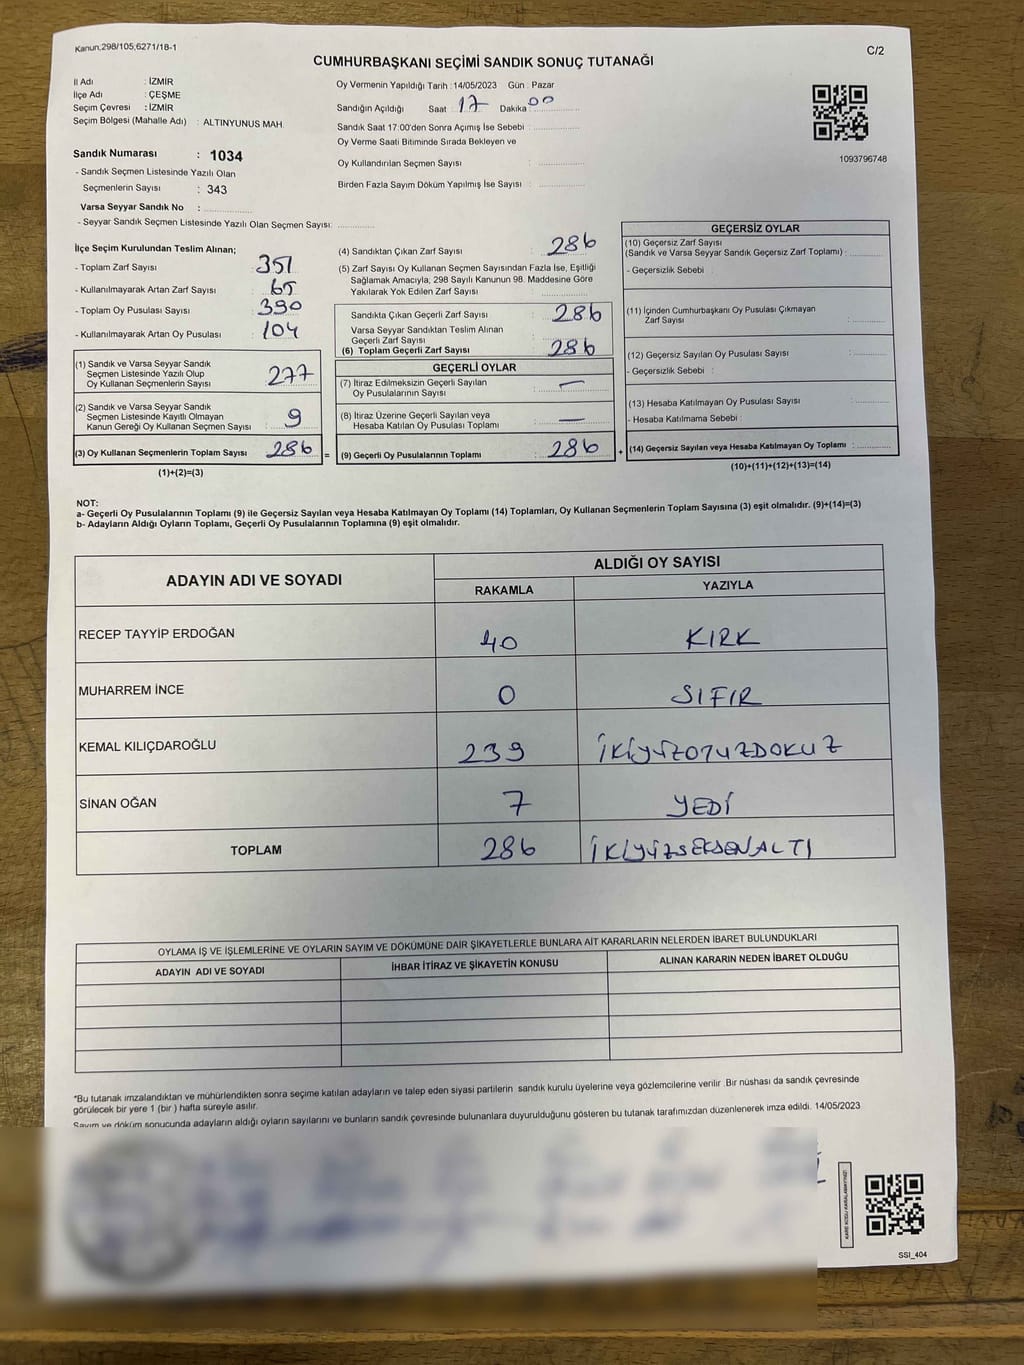 Kanun;298/105;6271/18-1
C/2
CUMHURBAŞKANI SEÇİMİ SANDIK SONUÇ TUTANAĞI
İl Adı : İZMİR
İlçe Adı : ÇEŞME
Seçim Çevresi : İZMİR
Seçim Bölgesi (Mahalle Adı) : ALTINYUNUS MAH.
Sandık Numarası : 1034
- Sandık Seçmen Listesinde Yazılı Olan
Seçmenlerin Sayısı : 343
Varsa Seyyar Sandık No :
- Seyyar Sandık Seçmen Listesinde Yazılı Olan Seçmen Sayısı:
Oy Vermenin Yapıldığı Tarih : 14/05/2023 Gün : Pazar
Sandığın Açıldığı Saat 17 Dakika 00
Sandık Saat 17:00'den Sonra Açımış İse Sebebi :
Oy Verme Saati Bitiminde Sırada Bekleyen ve
Oy Kullandırılan Seçmen Sayısı :
Birden Fazla Sayım Döküm Yapılmış İse Sayısı :
1093796748
İlçe Seçim Kurulundan Teslim Alınan;
- Toplam Zarf Sayısı : 351
- Kullanılmayarak Artan Zarf Sayısı : 65
- Toplam Oy Pusulası Sayısı : 390
- Kullanılmayarak Artan Oy Pusulası : 104
(1) Sandık ve Varsa Seyyar Sandık
Seçmen Listesinde Yazılı Olup
Oy Kullanan Seçmenlerin Sayısı : 277
(2) Sandık ve Varsa Seyyar Sandık
Seçmen Listesinde Kayıtlı Olmayan
Kanun Gereği Oy Kullanan Seçmen Sayısı : 9
(3) Oy Kullanan Seçmenlerin Toplam Sayısı : 286 =
(1)+(2)=(3)
(4) Sandıktan Çıkan Zarf Sayısı : 286
(5) Zarf Sayısı Oy Kullanan Seçmen Sayısından Fazla İse, Eşitliği
Sağlamak Amacıyla; 298 Sayılı Kanunun 98. Maddesine Göre
Yakılarak Yok Edilen Zarf Sayısı
Sandıkta Çıkan Geçerli Zarf Sayısı : 286
Varsa Seyyar Sandıktan Teslim Alınan
Geçerli Zarf Sayısı :
(6) Toplam Geçerli Zarf Sayısı : 286
GEÇERLİ OYLAR
(7) İtiraz Edilmeksizin Geçerli Sayılan
Oy Pusulalarının Sayısı : —
(8) İtiraz Üzerine Geçerli Sayılan veya
Hesaba Katılan Oy Pusulası Toplamı : —
(9) Geçerli Oy Pusulalarının Toplamı : 286 +
GEÇERSİZ OYLAR
(10) Geçersiz Zarf Sayısı
(Sandık ve Varsa Seyyar Sandık Geçersiz Zarf Toplamı) :
- Geçersizlik Sebebi :
(11) İçinden Cumhurbaşkanı Oy Pusulası Çıkmayan
Zarf Sayısı :
(12) Geçersiz Sayılan Oy Pusulası Sayısı :
- Geçersizlik Sebebi :
(13) Hesaba Katılmayan Oy Pusulası Sayısı :
- Hesaba Katılmama Sebebi :
(14) Geçersiz Sayılan veya Hesaba Katılmayan Oy Toplamı :
(10)+(11)+(12)+(13)=(14)
NOT:
a- Geçerli Oy Pusulalarının Toplamı (9) ile Geçersiz Sayılan veya Hesaba Katılmayan Oy Toplamı (14) Toplamları, Oy Kullanan Seçmenlerin Toplam Sayısına (3) eşit olmalıdır. (9)+(14)=(3)
b- Adayların Aldığı Oyların Toplamı, Geçerli Oy Pusulalarının Toplamına (9) eşit olmalıdır.
ADAYIN ADI VE SOYADI ALDIĞI OY SAYISI
RAKAMLA YAZIYLA
RECEP TAYYİP ERDOĞAN 40 KIRK
MUHARREM İNCE 0 SIFIR
KEMAL KILIÇDAROĞLU 239 İKİYÜZOTUZDOKUZ
SİNAN OĞAN 7 YEDİ
TOPLAM 286 İKİYÜZSEKSENALTI
OYLAMA İŞ VE İŞLEMLERİNE VE OYLARIN SAYIM VE DÖKÜMÜNE DAİR ŞİKAYETLERLE BUNLARA AİT KARARLARIN NELERDEN İBARET BULUNDUKLARI
ADAYIN ADI VE SOYADI İHBAR İTİRAZ VE ŞİKAYETİN KONUSU ALINAN KARARIN NEDEN İBARET OLDUĞU
*Bu tutanak imzalandıktan ve mühürlendikten sonra seçime katılan adayların ve talep eden siyasi partilerin sandık kurulu üyelerine veya gözlemcilerine verilir .Bir nüshası da sandık çevresinde
görülecek bir yere 1 (bir ) hafta süreyle asılır.
Sayım ve döküm sonucunda adayların aldığı oyların sayılarını ve bunların sandık çevresinde bulunanlara duyurulduğunu gösteren bu tutanak tarafımızdan düzenlenerek imza edildi. 14/05/2023
SSI_404